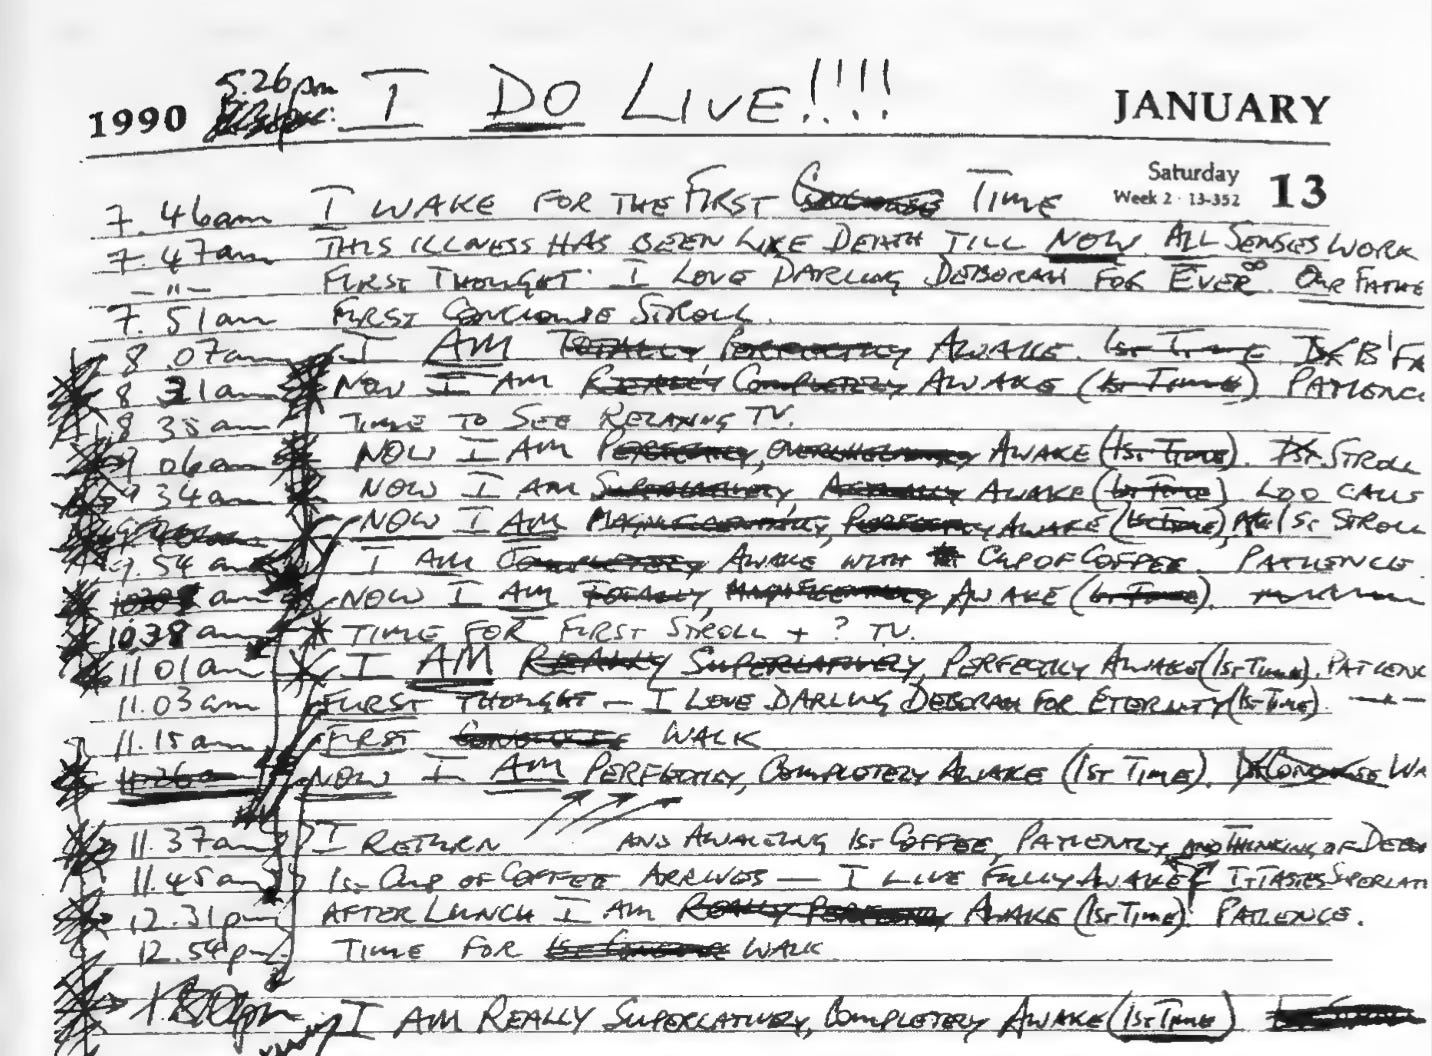 1990 5.26pm I DO LIVE!!!! JANUARY
Saturday
Week 2 · 13-352 13
7.46am I WAKE FOR THE FIRST TIME
7.47am THIS ILLNESS HAS BEEN LIKE DEATH TILL NOW. ALL SENSES WORK
-"- FIRST THOUGHT: I LOVE DARLING DEBORAH FOR EVER∞. OUR FATHE
7.51am FIRST CONCIOUSE STROLL.
8.07am I AM TOTALLY PERFECTLY AWAKE. 1ST TIME B'FA
8.31am NOW I AM REALLY COMPLETELY AWAKE (1ST TIME) PATIENC
8 35am TIME TO SEE RELAXING TV.
9 06am NOW I AM PERFECTLY, OVERWHELMINGLY AWAKE (1ST TIME). 1ST STROLL
9 34am NOW I AM SUPERLATIVELY ACTUALLY AWAKE (1ST TIME) LOO CALLS
NOW I AM MAGNIFICENTLY, PERFECTLY AWAKE (1ST TIME), 1ST STROLL
9.54am I AM COMPLETELY AWAKE WITH CUP OF COFFEE. PATIENCE.
am NOW I AM TOTALLY, AWAKE (1ST TIME).
10 38am TIME FOR FIRST STROLL + ? TV.
11 01am I AM REALLY SUPERLATIVELY, PERFECTLY AWAKE (1ST TIME). PATIENC
11.03am FIRST THOUGHT – I LOVE DARLING DEBORAH FOR ETERNITY (1ST TIME).
11.15am FIRST CONCIOUSE WALK
11.26a NOW I AM PERFECTLY, COMPLETELY AWAKE (1ST TIME). 1ST CONCIOUSE WA
11.37am I RETURN AND AWAITING 1ST COFFEE, PATIENTLY AND THINKING OF DEBOR
11.45am 1ST CUP OF COFFEE ARRIVES – I LIVE FULLY AWAKE IT TASTES SUPERLATI
12.31pm AFTER LUNCH I AM REALLY PERFECTLY AWAKE (1ST TIME). PATIENCE.
12.54pm TIME FOR 1ST CONCIOUSE WALK
pm I AM REALLY SUPERLATIVELY, COMPLETELY AWAKE (1ST TIME)